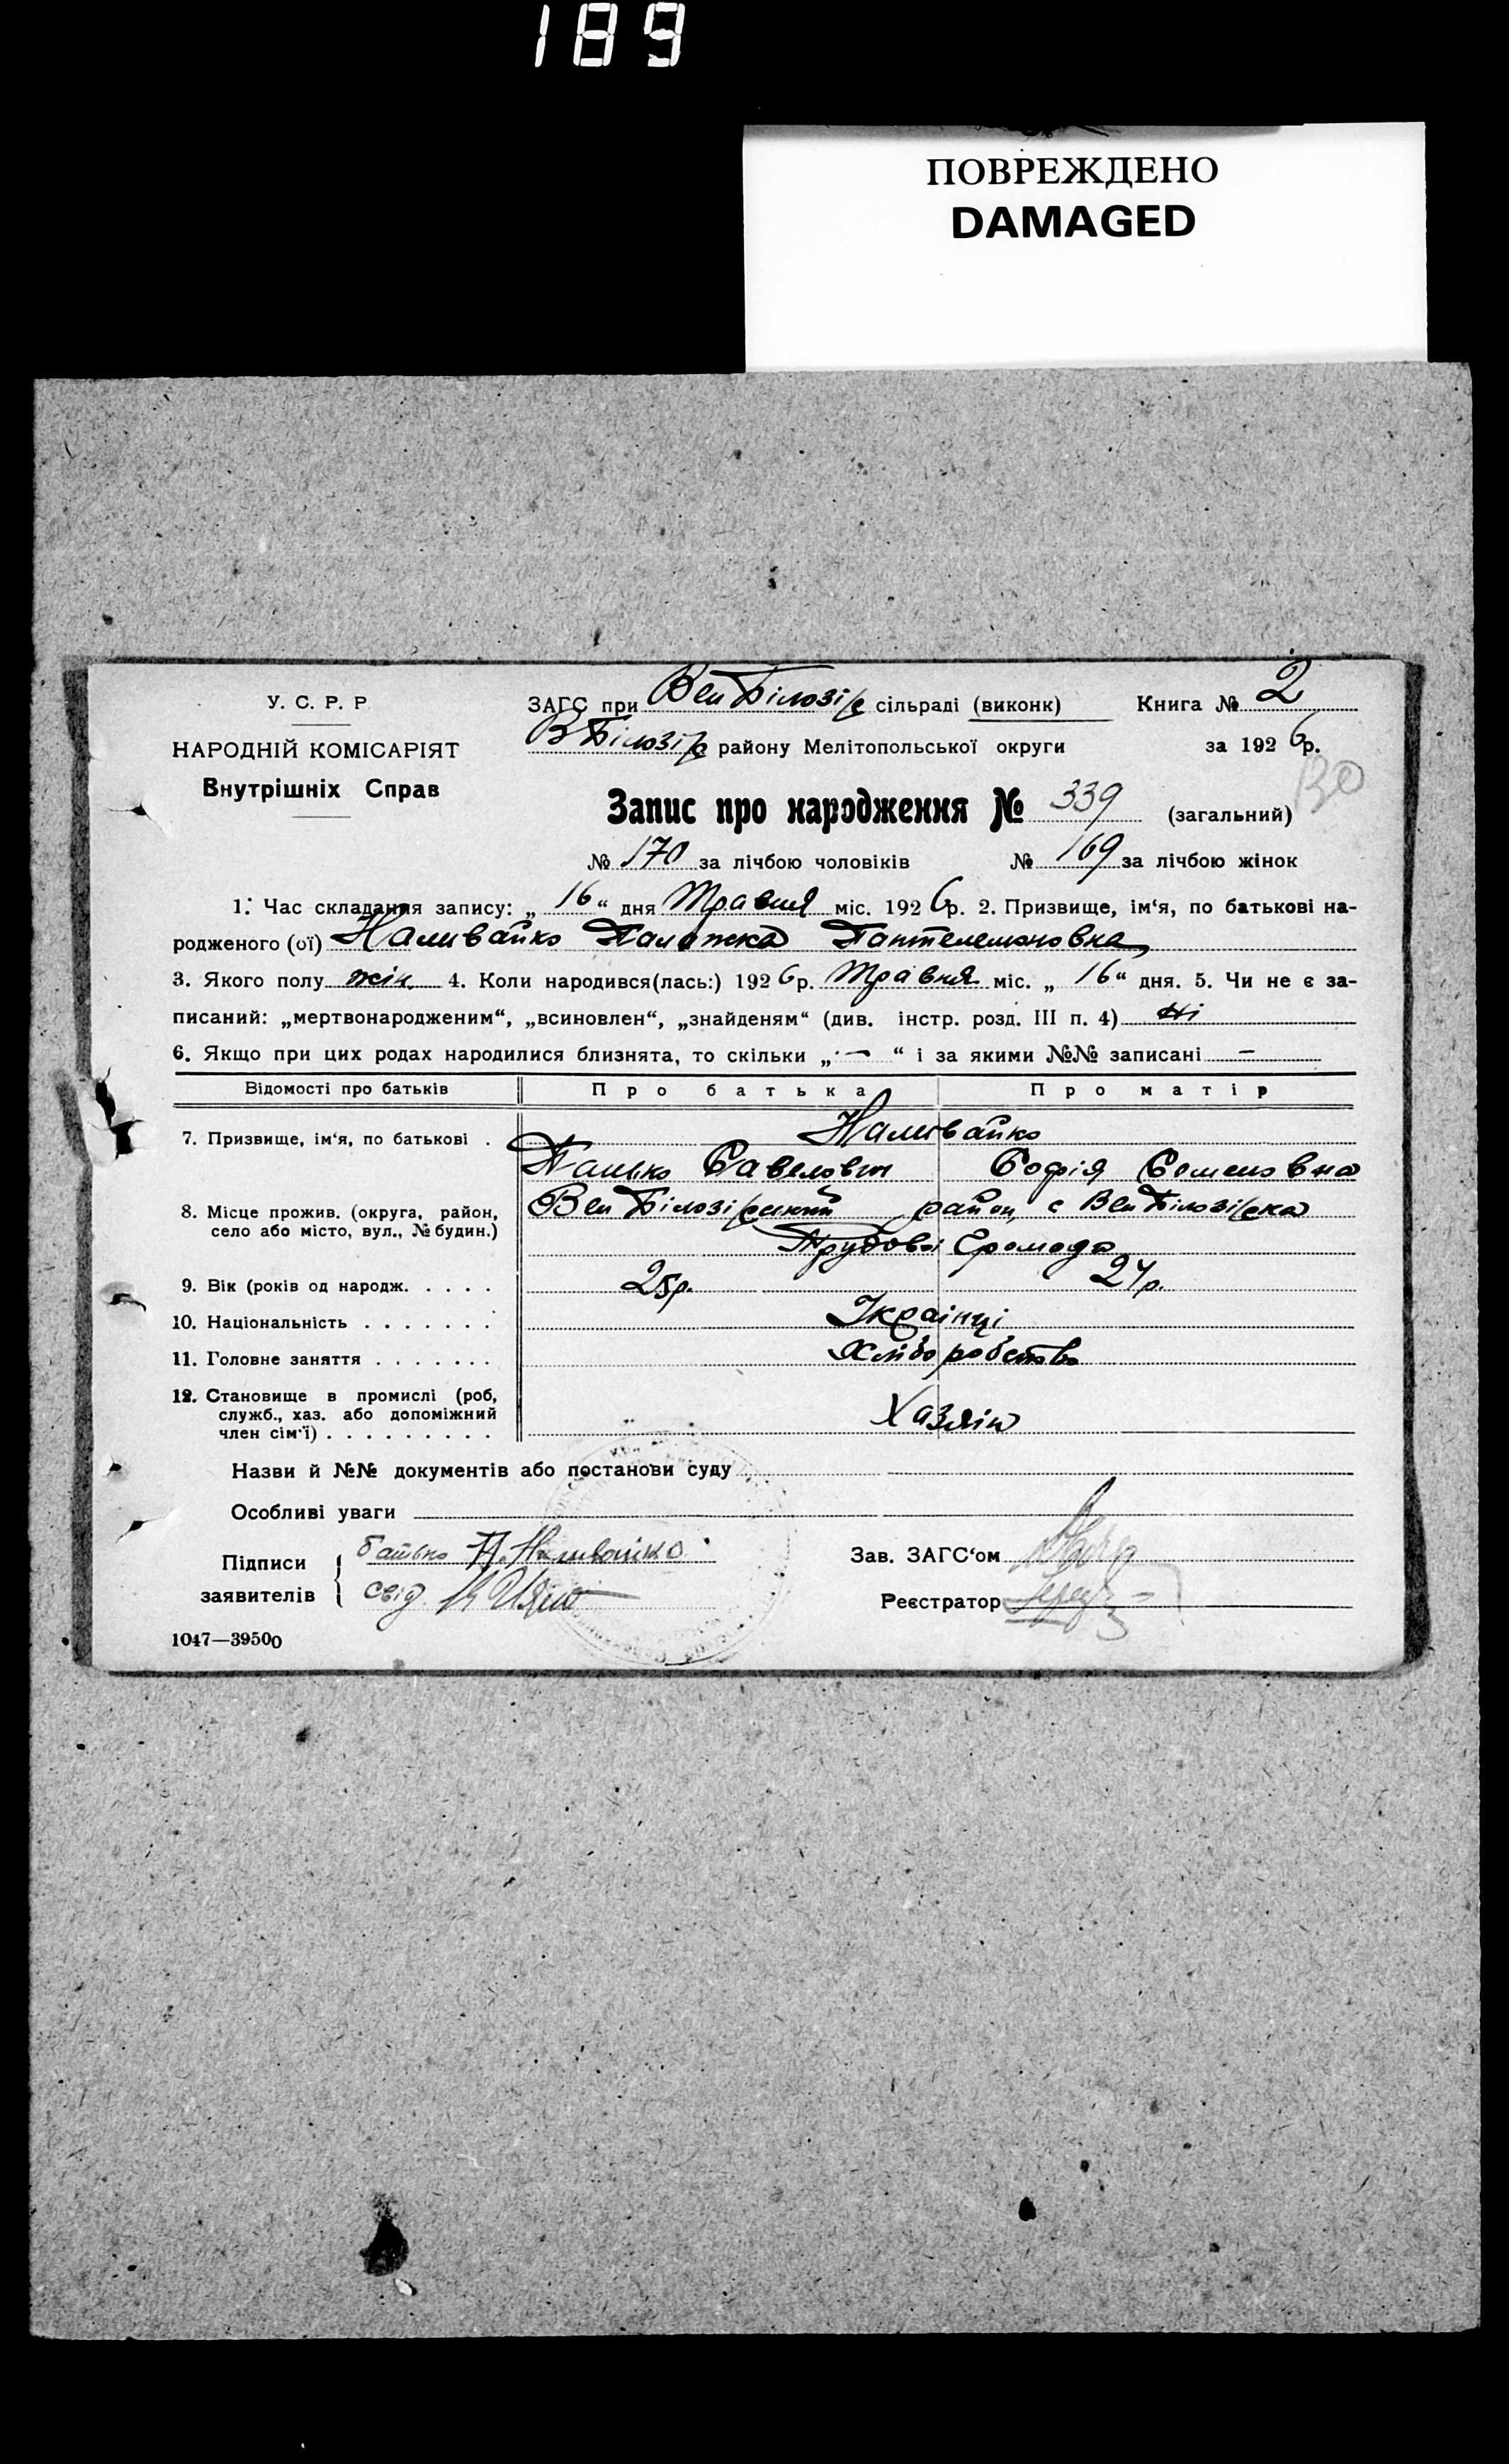 189
ПОВРЕЖДЕНО
DAMAGED
У. С. Р. Р.
НАРОДНІЙ КОМІСАРІЯТ
Внутрішніх Справ
ЗАГС при Вел Білозір сільраді (виконк) Книга № 2
В Білозір району Мелітопольської округи за 1926 р.
130
Запис про народження № 339 (загальний)
№ 170 за лічбою чоловіків № 169 за лічбою жінок
1. Час складання запису: „16“ дня Травня міс. 1926 р. 2. Призвище, ім‘я, по батькові на-
родженого (ої) Наливайко Палажка Пантелемоновна
3. Якого полу жін. 4. Коли народився(лась:) 1926 р. Травня міс. „16“ дня. 5. Чи не є за-
писаний: „мертвонародженим“, „всиновлен“, „знайденям“ (див. інстр. розд. III п. 4) Ні
6. Якщо при цих родах народилися близнята, то скільки „—“ і за якими №№ записані —
Відомості про батьків Про батька Про матір
7. Призвище, ім‘я, по батькові . Наливайко
Панько Савелович Софія Семеновна
8. Місце прожив. (округа, район,
село або місто, вул., № будин.)
Вел Білозірський район, с Вел Білозірка
Трудова Громада
9. Вік (років од народж. . . . . 25р. 24р.
10. Національність . . . . . . . Українці
11. Головне заняття . . . . . . . Хліборобство
12. Становище в промислі (роб,
служб., хаз. або допоміжний
член сім‘ї) . . . . . . . . . Хазяін
Назви й №№ документів або постанови суду
Особливі уваги
Підписи
заявителів
батько П. Наливайко
свід.
Зав. ЗАГС‘ом
Реєстратор
1047—39500